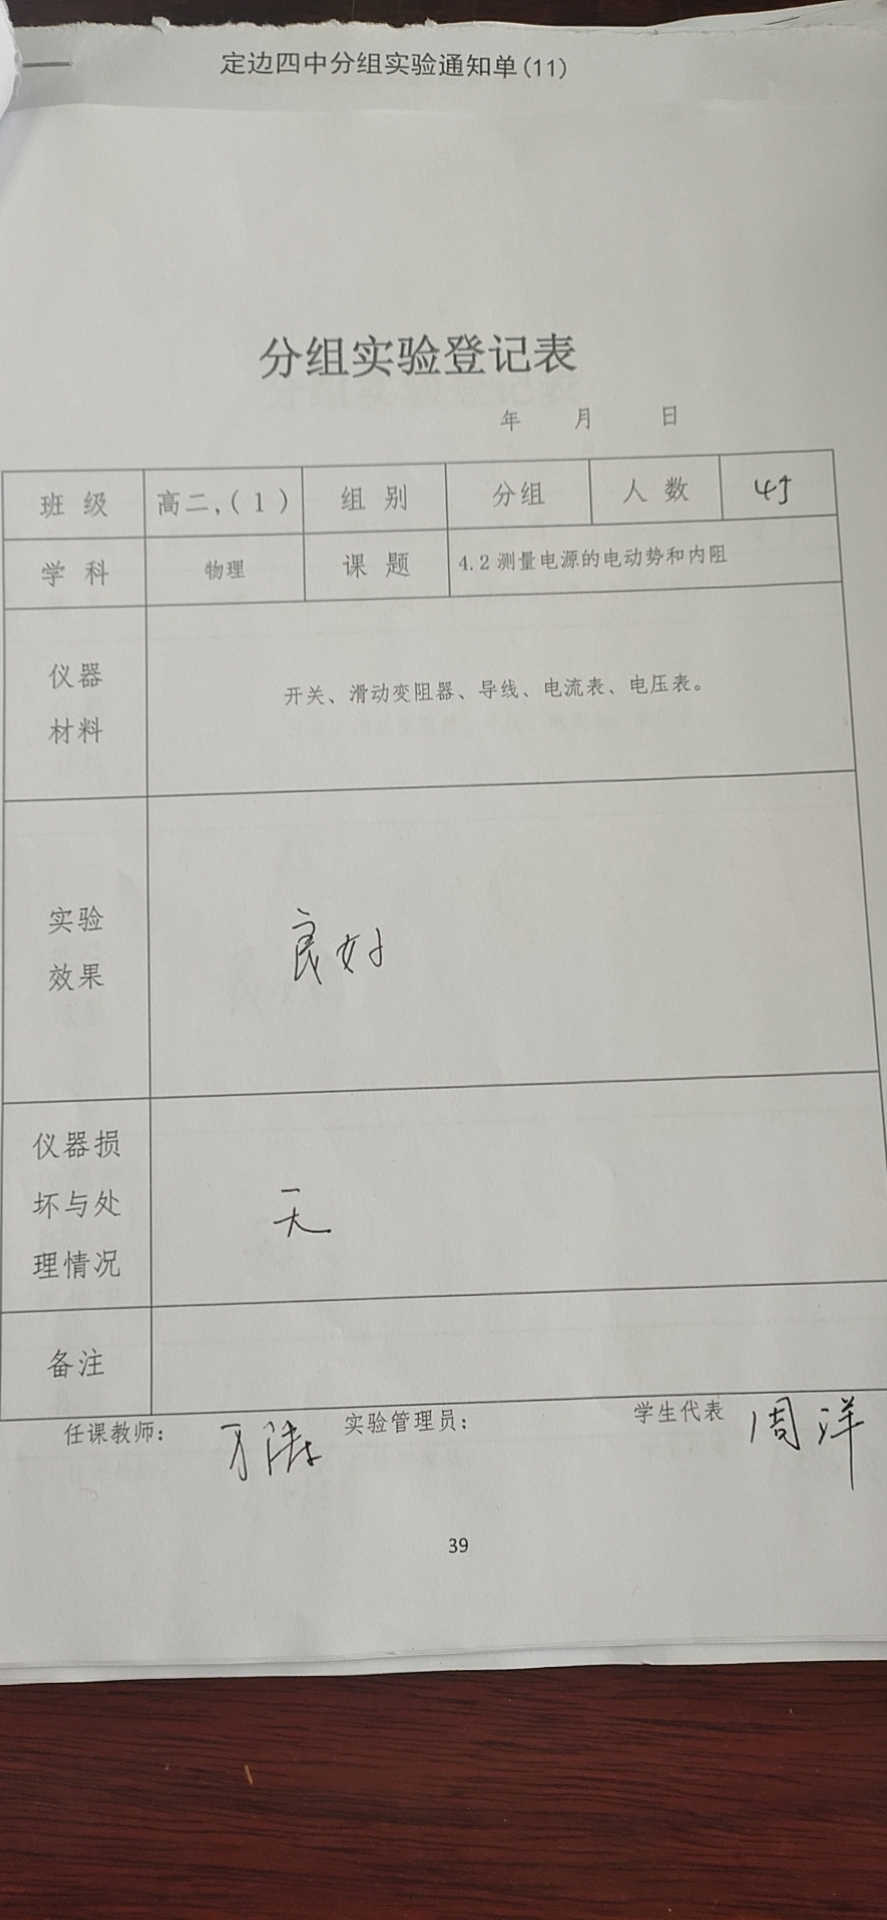 定边四中分组实验通知单(11)
分组实验登记表
年 月 日
班 级 高二,(1) 组 别 分组 人 数 45
学 科 物理 课 题 4.2测量电源的电动势和内阻
仪器
材料
开关、滑动变阻器、导线、电流表、电压表。
实验
效果
良好
仪器损
坏与处
理情况
无
备注
任课教师: 实验管理员: 学生代表 周洋
39